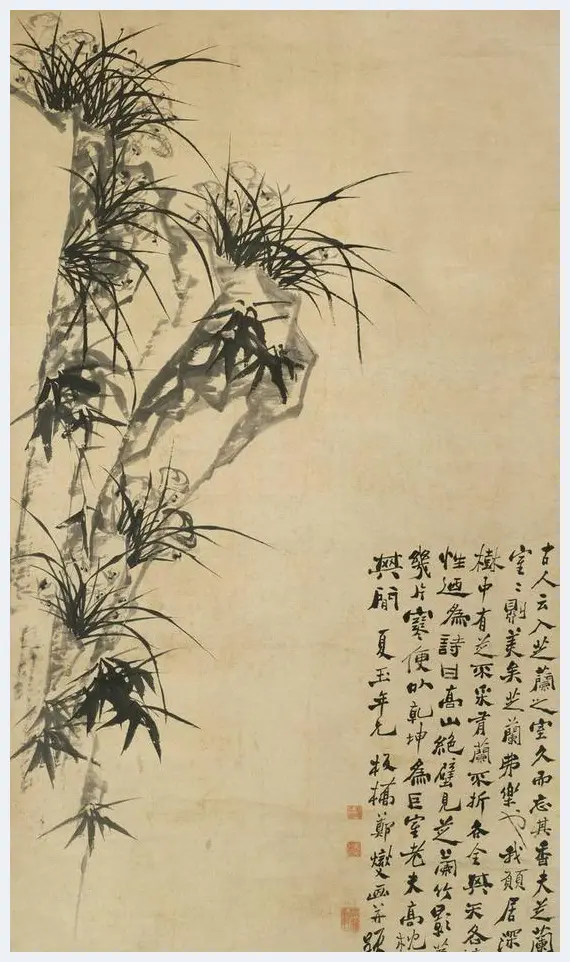 古人云入芝蘭之室久而忘其香夫芝蘭
室〻則美矣芝蘭弗樂也我願居深
樹中有芝不采有蘭不折各全其天各
性迺為詩曰高山絕壁見芝蘭竹影
幾片寒便以乾坤為巨室老夫高枕
其間 夏玉年兄 板橋鄭燮画并題